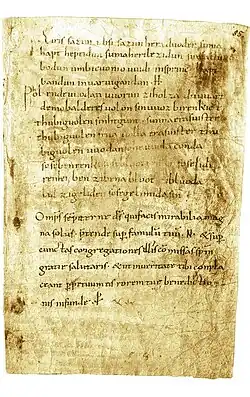 Eiris sazun idisi sazun hera duoder suma
hapt heptidun suma heri lezidun suma clu
bodun umbi cuonio uuidi insprinc hapt
bandun inuar uigandun H
Phol ende uuodan uuorun zi holza du uuart
demo balderes uolon sin uuoz birenkict
thu biguolen sinhtgunt sunna era suister
thu biguolen friia uolla era suister thu
biguolen uuodan so he uuola conda
sose benrenki sose bluotrenki sose lidi
renki ben zi bena bluot zi bluoda
lid zi geliden sose gelimida sin
Omps sēpiterne dš qui facis mirabilia mag
na solus p̄tende sup famulū tuū N & sup
cunctas congregationes illis cōmissas spm
gratie salutaris & ut in ueritate tibi compla
ceant ppetuum eis rorem tue benedictio
nis infunde p